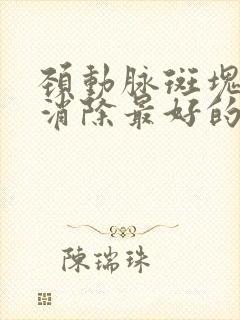 頸動脉斑塊
消除最好的
陳瑞珠